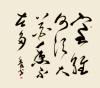 室雅
何須大
花香不
在多